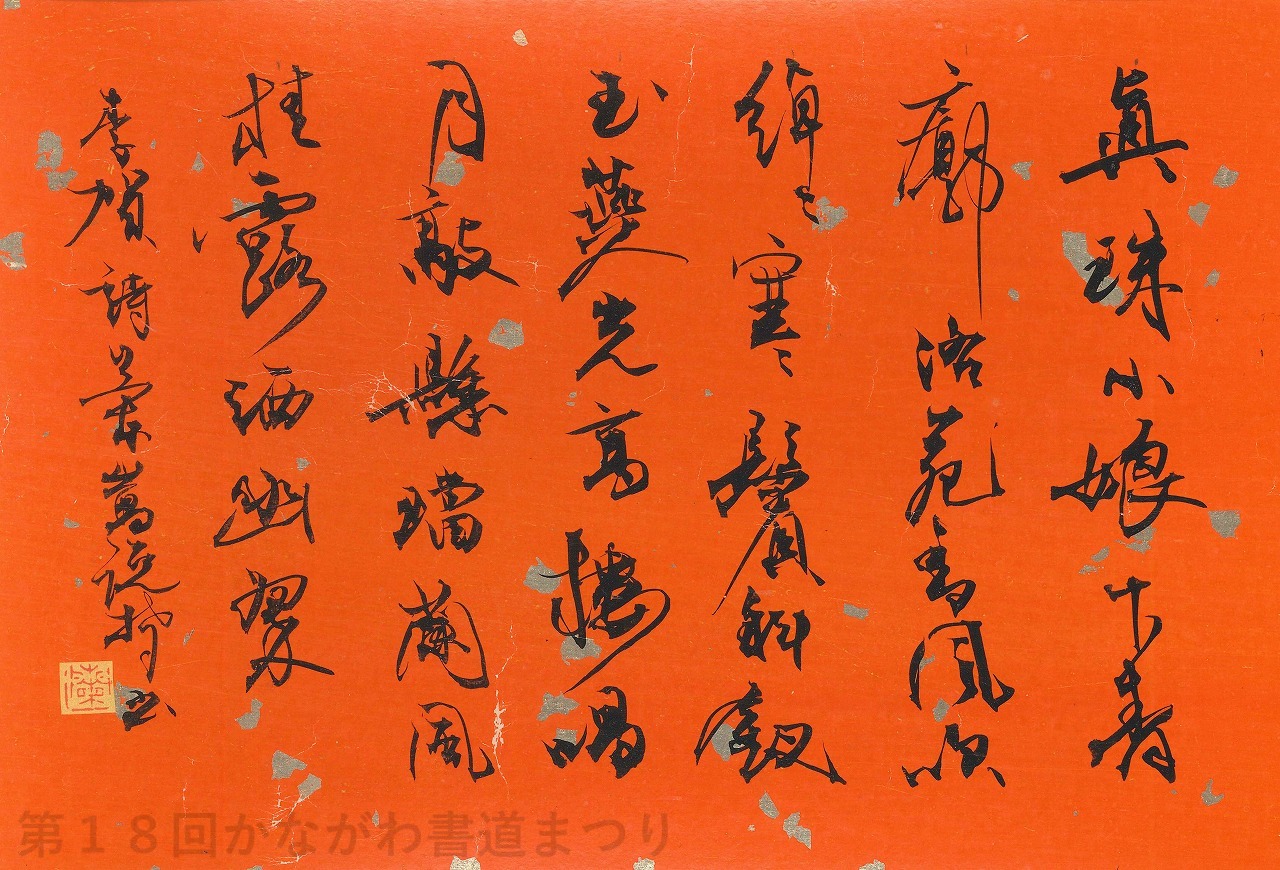 眞珠小娘下青
廓洛苑香風飛
綽〻寒〻鬢斜釵
玉燕光高樓唱
月敲懸璫蘭風
桂露洒幽翠
李賀詩
第１８回かながわ書道まつり